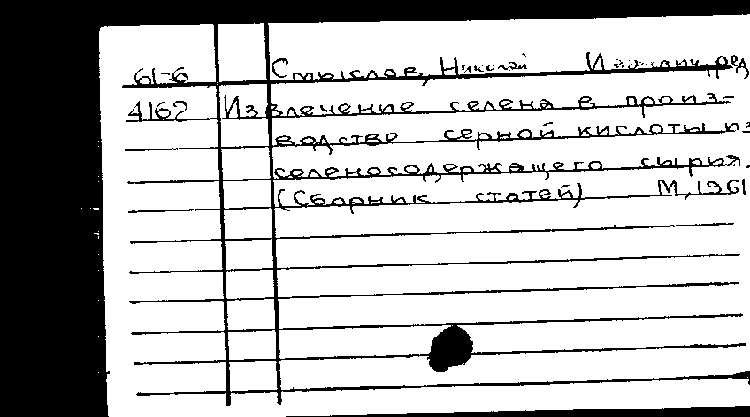 61-6 Смыслов, Николай ред
4162 Извлечение селена в произ-
водстве серной кислоты из
селеносодержащего сырья.
(Сборник статей) М, 1961